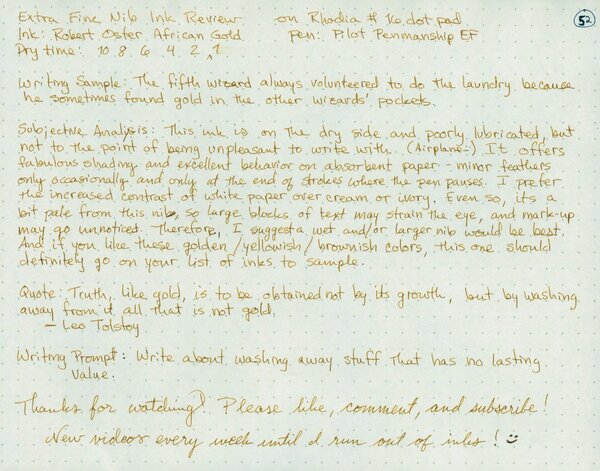 Extra Fine Nib Ink Review on Rhodia # 16 dot pad 52
Ink: Robert Oster African Gold Pen: Pilot Penmanship EF
Dry time: 10 8 6 4 2 1
Writing Sample: The fifth wizard always volunteered to do the laundry because
he sometimes found gold in the other wizards' pockets.
Subjective Analysis: This ink is on the dry side and poorly lubricated, but
not to the point of being unpleasant to write with. (Airplane-) It offers
fabulous shading and excellent behavior on absorbent paper - minor feathers
only occasionally and only at the end of strokes where the pen pauses. I prefer
the increased contrast of white paper over cream or ivory. Even so, it's a
bit pale from this nib, so large blocks of text may strain the eye, and mark-up
may go unnoticed. Therefore, I suggest a wet and/or larger nib would be best.
And if you like these golden/yellowish/brownish colors, this one should
definitely go on your list of inks to sample.
Quote: Truth, like gold, is to be obtained not by its growth, but by washing
away from it all that is not gold.
- Leo Tolstoy
Writing Prompt: Write about washing away stuff that has no lasting
value.
Thanks for watching! Please like, comment, and subscribe!
New videos every week until I run out of inks!